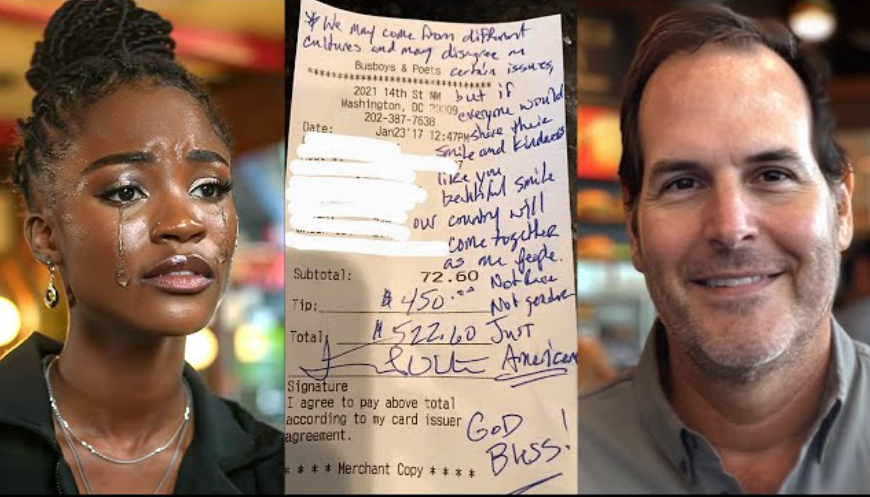 * We may come from different
cultures and may disagree on
Busboys & Poets certain issues,
********************
2021 14th St NW but if
Washington, DC 20009 everyone would
202-387-7638 share their
Date: Jan23'17 12:47PM
smile and kindness
7
like your
beautiful smile
our country will
come together
as one people.
Subtotal: 72.60 Not race
Tip: $ 450.00 Not gender
Total $ 522.60 Just
American
Signature
I agree to pay above total
according to my card issuer
agreement.
GOD
Bless!
* * * * Merchant Copy * * * *